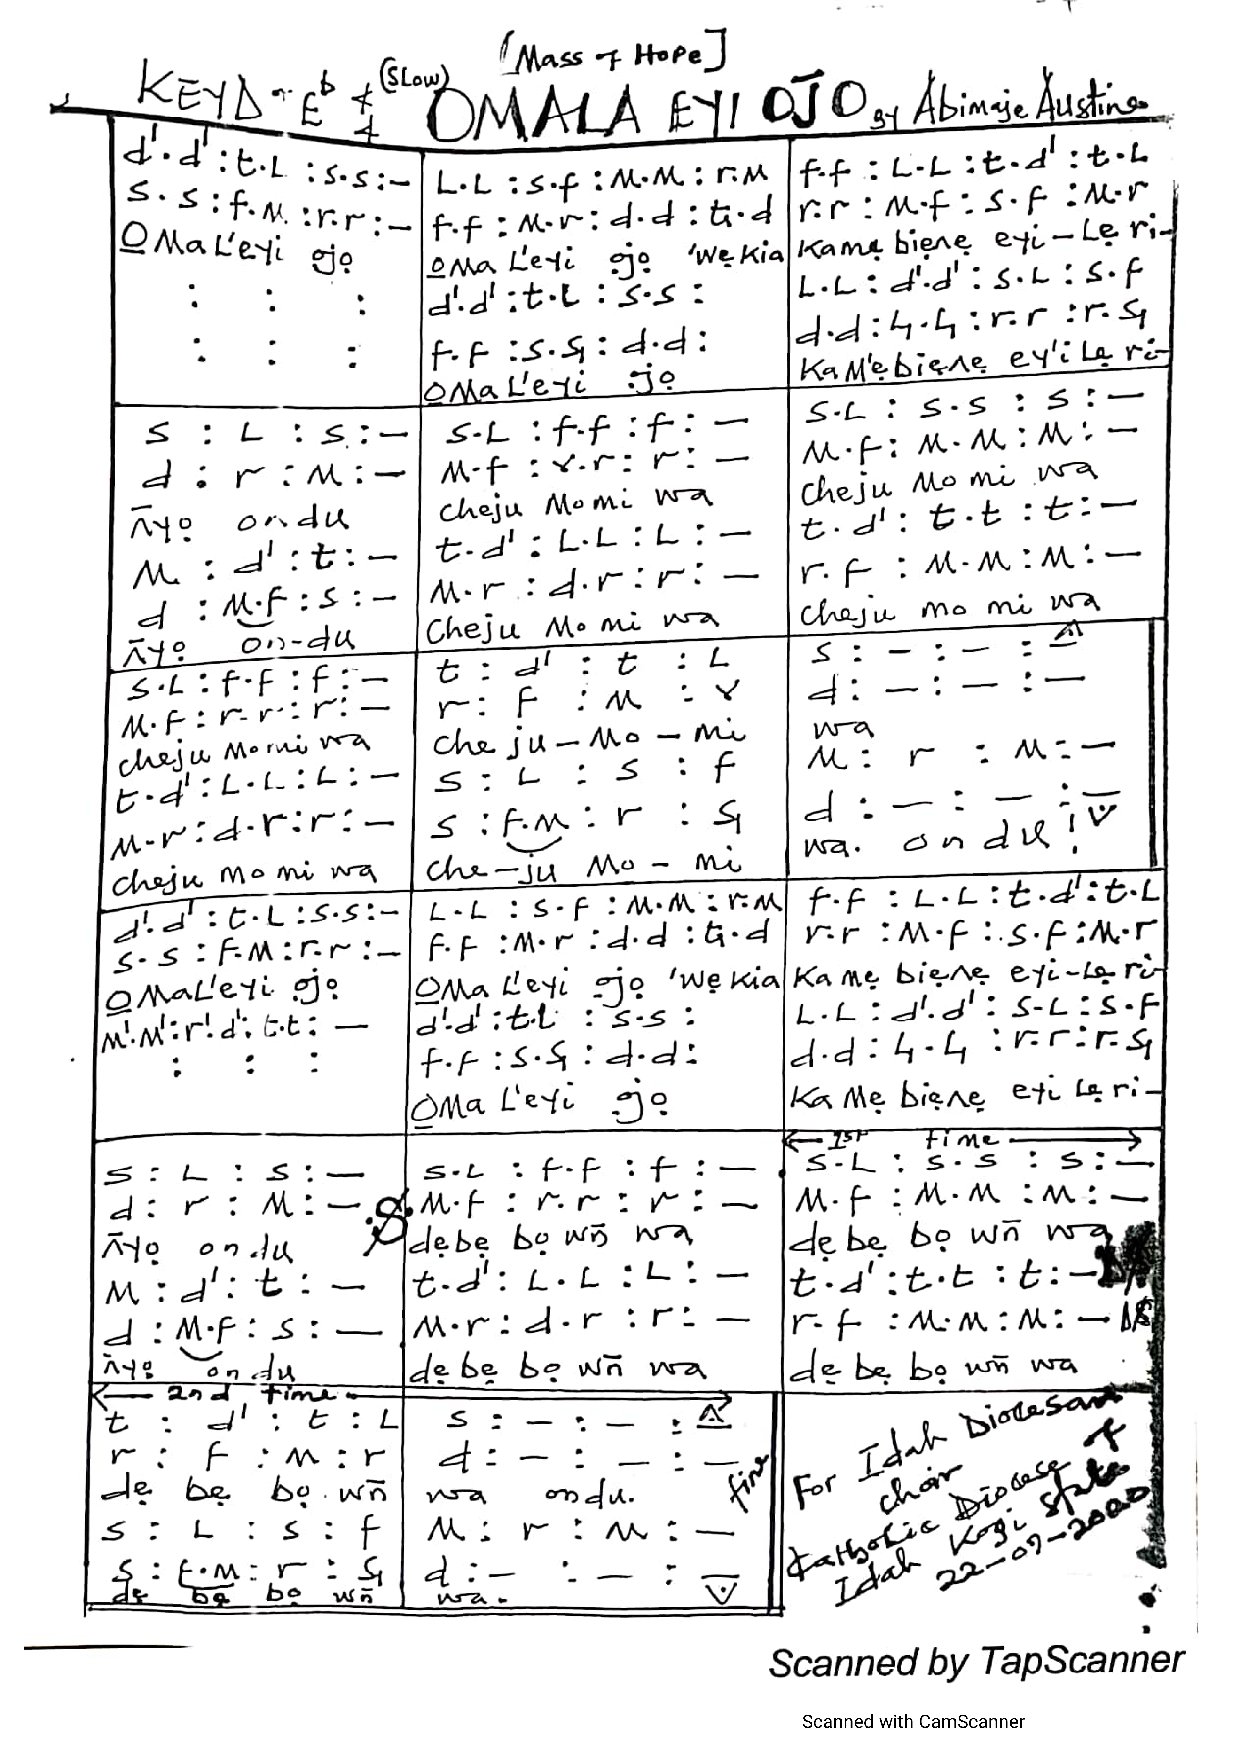 [Mass of Hope]
KEY D - Eb 4/4 (SLow) OMALA EYI OJO By Abimaje Austine
d'.d' : t.L : s.s : –
s.s : f.M : r.r : –
O̱Ma L'eyi ọjọ
: : :
: : :
L.L : s.f : M.M : r.M
f.f : M.r : d.d : t₁.d
O̱Ma L'eyi ọjọ 'Wẹ kia
d'.d' : t.L : s.s :
f.f : s.s₁ : d.d :
O̱Ma L'eyi ọjọ
f.f : L.L : t.d' : t.L
r.r : M.f : s.f : M.r
Kamẹ biẹnẹ eyi–Lẹ ri–
L.L : d'.d' : s.L : s.f
d.d : L₁.L₁ : r.r : r.s₁
Ka M'ẹ biẹnẹ ey'i Lẹ ri–
s : L : s : –
d : r : M : –
n̄yọ ondu
M : d' : t : –
d : M.f : s : –
n̄yọ on-du
s.L : f.f : f : –
M.f : r.r : r : –
cheju Momi wa
t.d' : L.L : L : –
M.r : d.r : r : –
Cheju Momi wa
s.L : s.s : s : –
M.f : M.M : M : –
cheju Momi wa
t.d' : t.t : t : –
r.f : M.M : M : –
cheju mo mi wa
s.L : f.f : f : –
M.f : r.r : r : –
cheju Momi wa
t.d' : L.L : L : –
M.r : d.r : r : –
cheju mo mi wa
t : d' : t : L
r : f : M : r
che ju – Mo – mi
s : L : s : f
s : f.M : r : s₁
che–ju Mo – mi
s : – : – : –
d : – : – : –
wa
M : r : M : –
d : – : – : –
wa. ondu!
d'.d' : t.L : s.s : –
s.s : f.M : r.r : –
O̱Ma L'eyi ọjọ
M'.M' : r'.d' : t.t : –
: : :
L.L : s.f : M.M : r.M
f.f : M.r : d.d : t₁.d
O̱Ma L'eyi ọjọ 'Wẹ kia
d'.d' : t.L : s.s :
f.f : s.s₁ : d.d :
O̱Ma L'eyi ọjọ
f.f : L.L : t.d' : t.L
r.r : M.f : s.f : M.r
Ka mẹ biẹnẹ eyi–Lẹ ri–
L.L : d'.d' : s.L : s.f
d.d : L₁.L₁ : r.r : r.s₁
Ka Mẹ biẹnẹ eyi Lẹ ri–
s : L : s : –
d : r : M : –
n̄yọ ondu
M : d' : t : –
d : M.f : s : –
n̄yọ ondu
s.L : f.f : f : –
M.f : r.r : r : –
dẹ bẹ bọ wn̄ wa
t.d' : L.L : L : –
M.r : d.r : r : –
dẹ bẹ bọ wn̄ wa
1st time
s.L : s.s : s : –
M.f : M.M : M : –
dẹ bẹ bọ wn̄ wa
t.d' : t.t : t : –
r.f : M.M : M : – DS
dẹ bẹ bọ wn̄ wa
2nd time
t : d' : t : L
r : f : M : r
dẹ bẹ bọ wn̄
s : L : s : f
s : f.M : r : s₁
dẹ bẹ bọ wn̄
s : – : – : –
d : – : – : –
wa ondu.
M : r : M : –
d : – : – : –
wa.
fine
For Idah Diocesan
choir
Katholic Diocese of
Idah Kogi State
22-07-2020
Scanned by TapScanner
Scanned with CamScanner